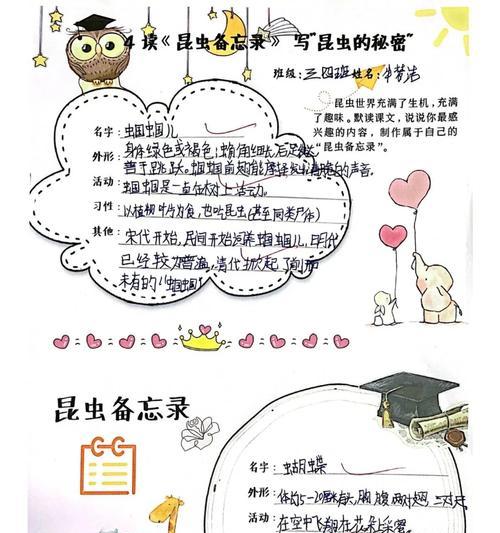 4 读《昆虫备忘录》 写"昆虫的秘密"
班级：三四班 姓名：
昆虫世界充满了生机，充满
了趣味。默读课文，说说你最感
兴趣的内容，制作属于自己的
“昆虫备忘录”。
名字：蝈蝈蝈儿
外形：身体绿色或褐色，触角细长，后足
善于跳跃。蝈蝈前翅能摩擦发出清脆的声音。
活动：蝈蝈是一直在树上活动。
习性：以植物叶片为食，也吃昆虫(甚至同类尸体)
其他：宋代开始，民间开始 蝈蝈儿，明代
已经较为普遍，清代 起了前所
未有的“蝈蝈
昆虫备忘录
名字：蝴蝶
外形：体 5-20 ，胸腹两对翅，
活动：在空中飞翔在花